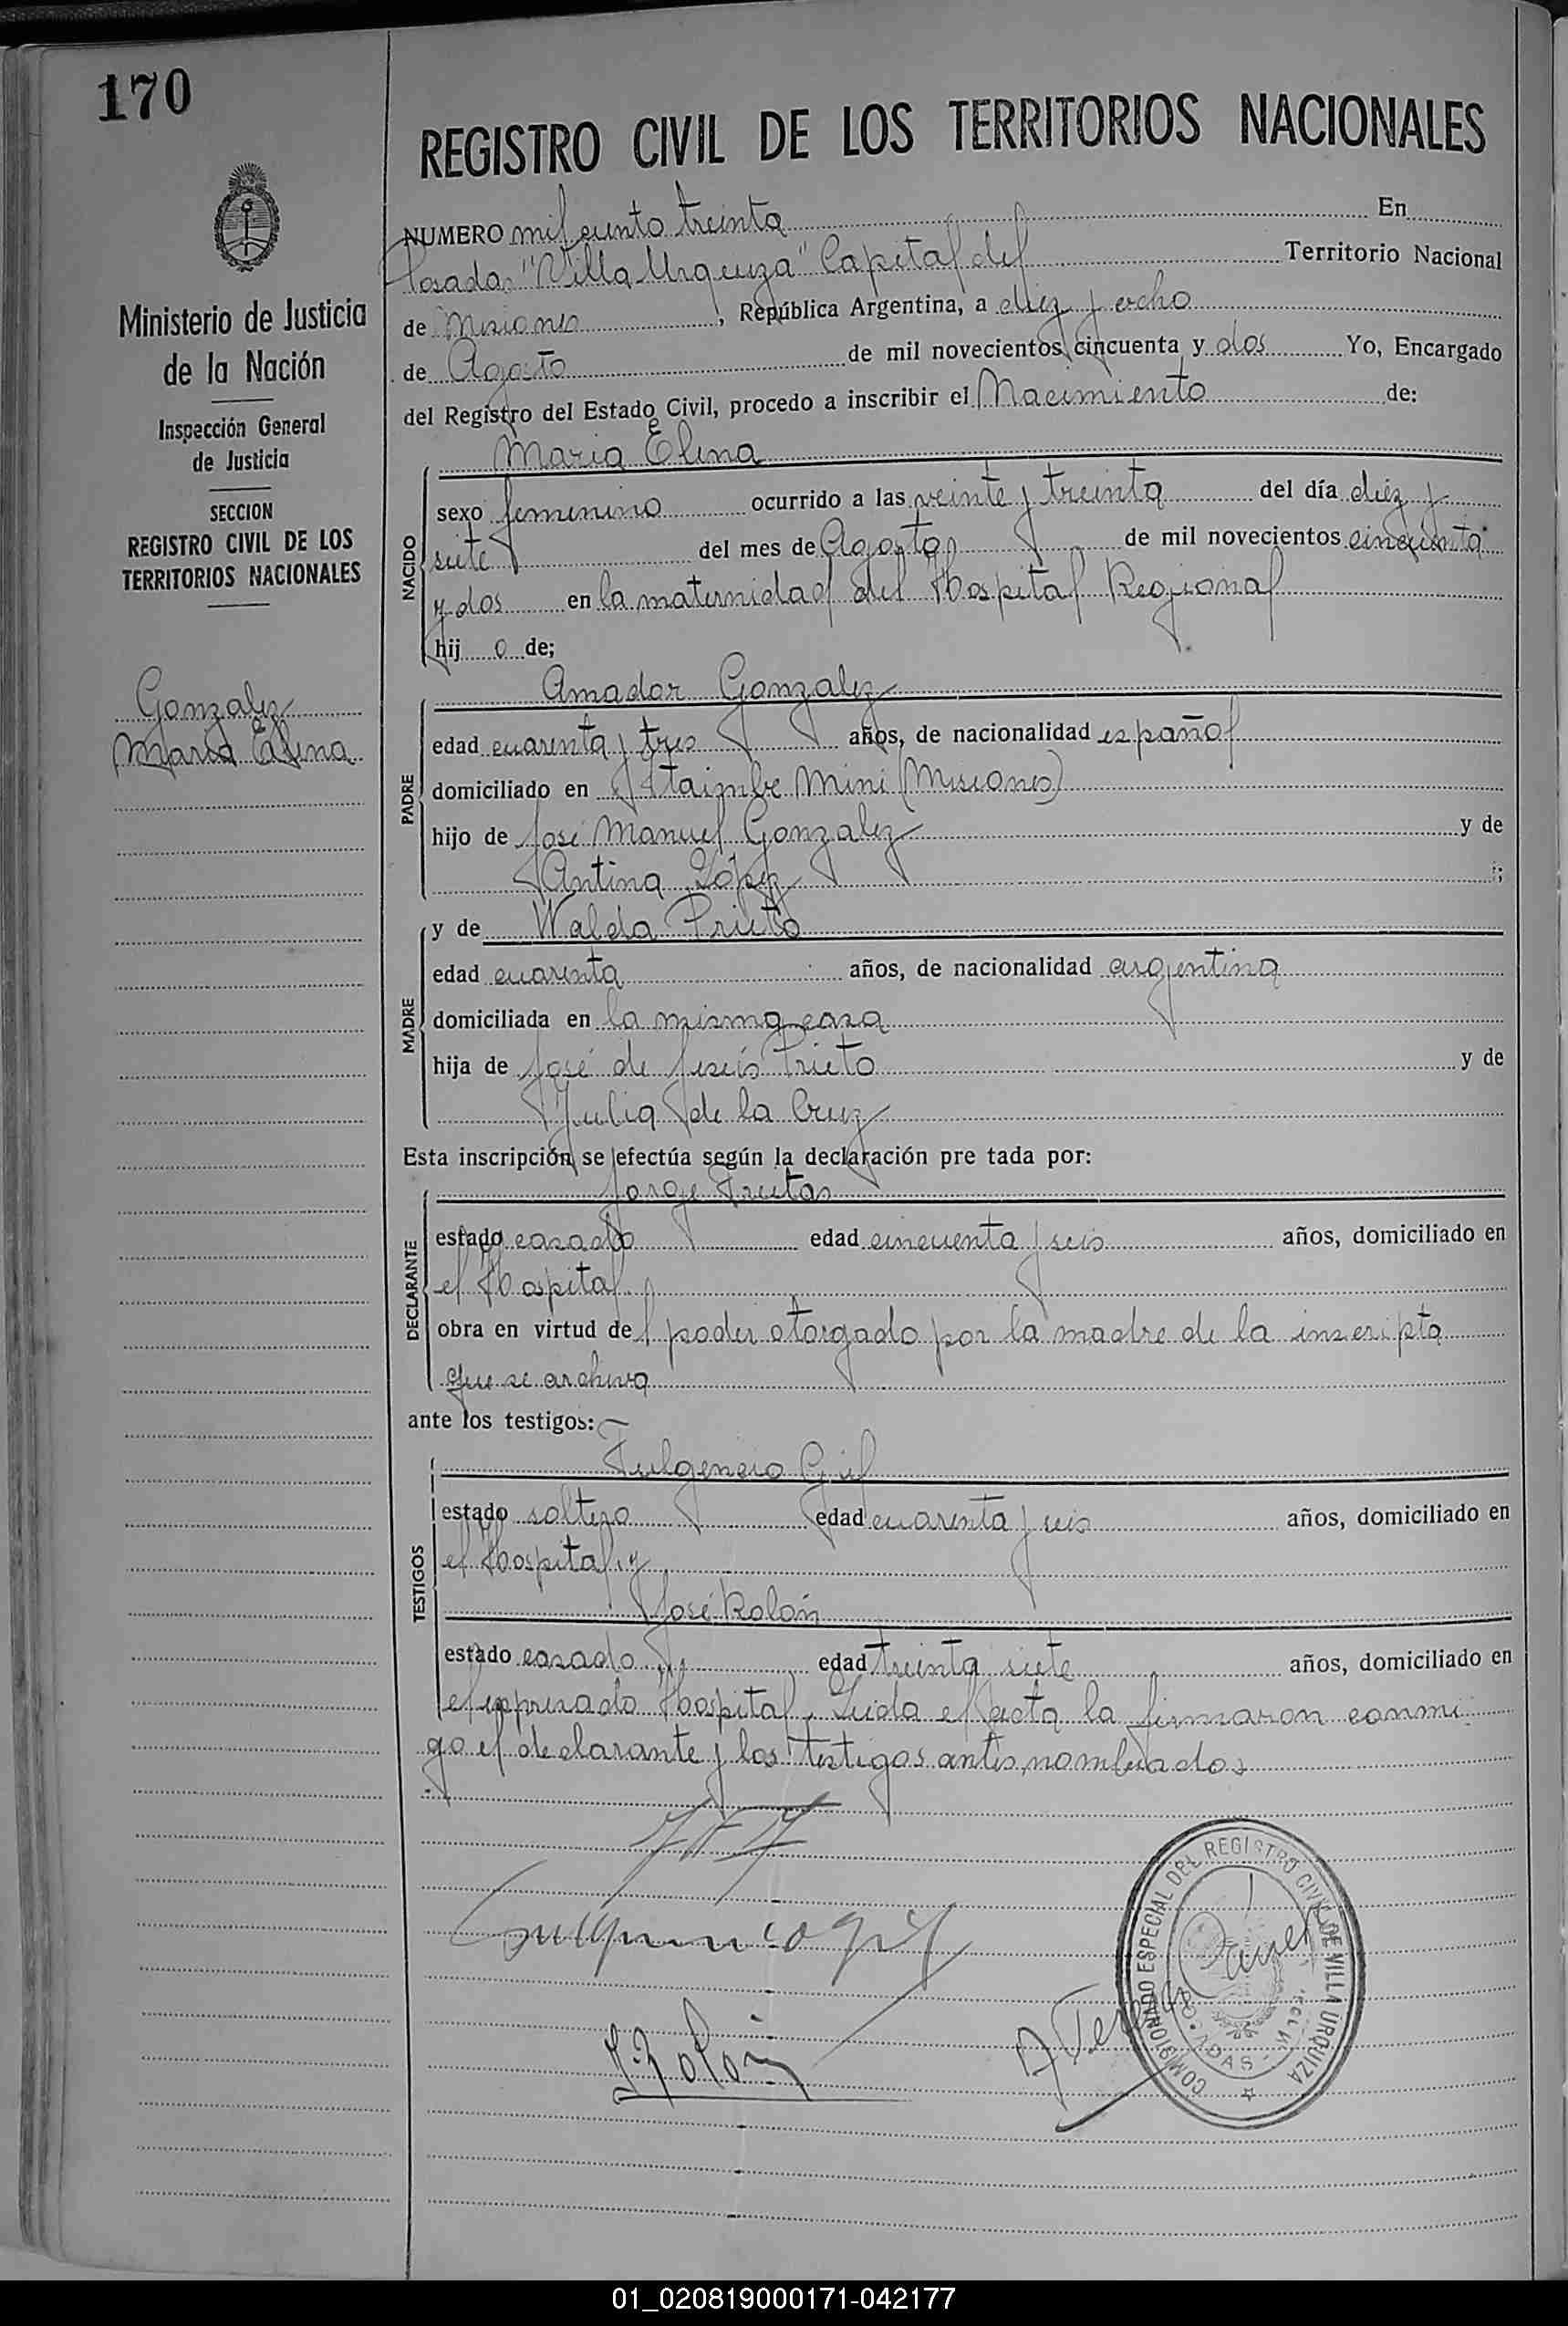 170
Ministerio de Justicia
de la Nación
Inspección General
de Justicia
SECCION
REGISTRO CIVIL DE LOS
TERRITORIOS NACIONALES
Gonzalez
Maria Elena
REGISTRO CIVIL DE LOS TERRITORIOS NACIONALES
NUMERO mil ciento treinta En
Posadas "Villa Urquiza" Capital del Territorio Nacional
de Misiones, República Argentina, a diez y ocho
de Agosto de mil novecientos cincuenta y dos Yo, Encargado
del Registro del Estado Civil, procedo a inscribir el Nacimiento de:
Maria Elena
NACIDO
sexo femenino ocurrido a las veinte y treinta del día diez y
siete del mes de Agosto de mil novecientos cincuenta
y dos en la maternidad del Hospital Regional
hij o de;
Amador Gonzalez
PADRE
edad cuarenta y tres años, de nacionalidad español
domiciliado en Itaimbe Mini (Misiones)
hijo de José Manuel Gonzalez y de
Antina López ;
y de Walda Prieto
MADRE
edad cuarenta años, de nacionalidad argentina
domiciliada en la misma casa
hija de José de Jesús Prieto y de
Julia de la Cruz
Esta inscripción se efectúa según la declaración pre tada por:
Jorge Freitas
DECLARANTE
estado casado edad cincuenta y seis años, domiciliado en
el Hospital
obra en virtud del poder otorgado por la madre de la inscripta
que se archiva
ante los testigos:
Fulgencio Gil
TESTIGOS
estado soltero edad cuarenta y seis años, domiciliado en
el Hospital y
José Rolón
estado casado edad treinta siete años, domiciliado en
el expresado Hospital. Leida el acta la firmaron conmi
go el declarante y los testigos antes nombrados
Fulgencio Gil
J. Rolón
COMISIONADO ESPECIAL DEL REGISTRO CIVIL DE VILLA URQUIZA
01_020819000171-042177